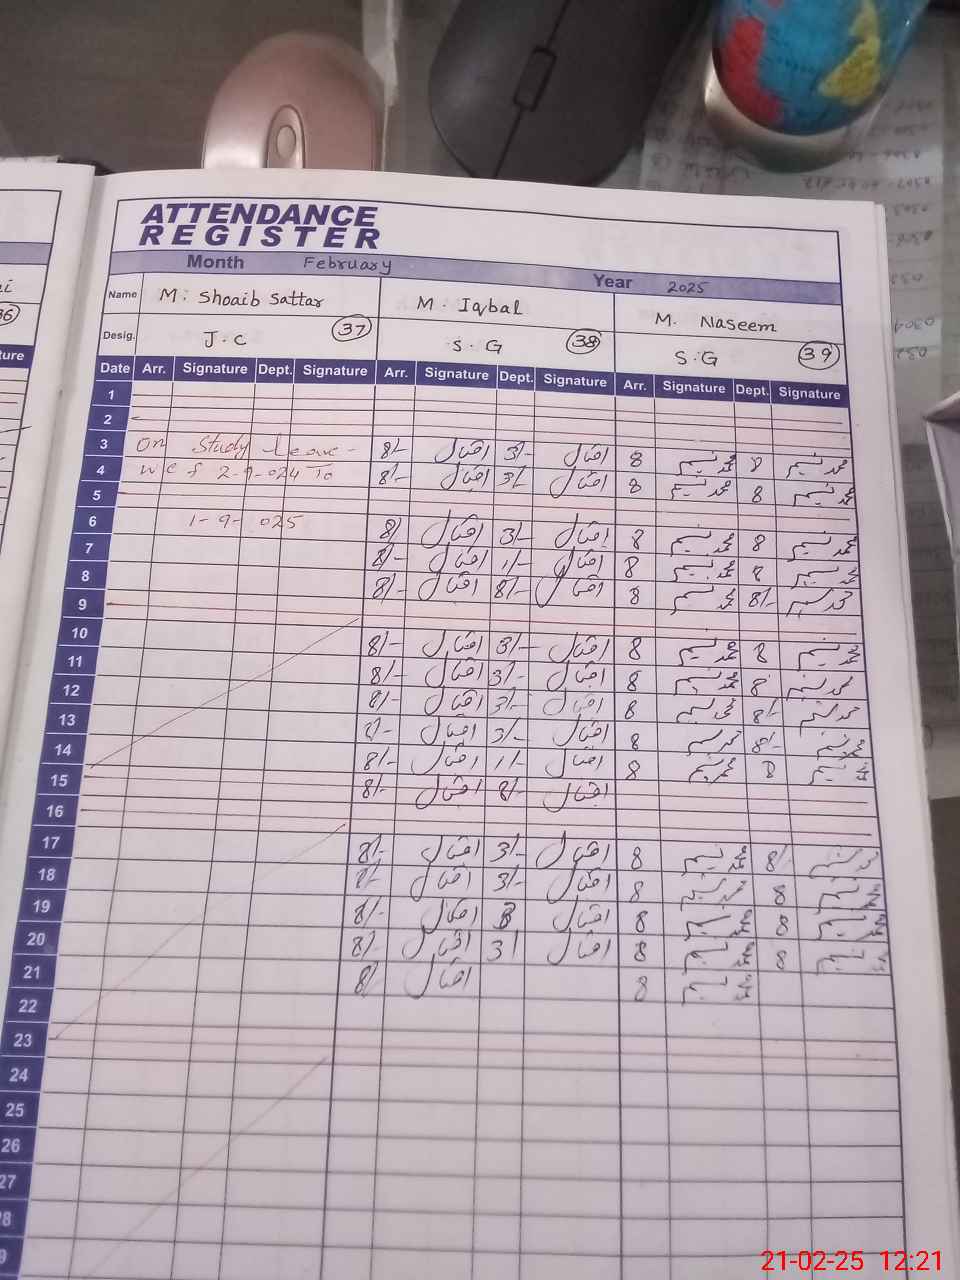 ATTENDANCE
REGISTER
Month February Year 2025
Name M. Shoaib Sattar M. Iqbal M. Naseem
Desig. J.C 37 S.G 38 S.G 39
Date Arr. Signature Dept. Signature Arr. Signature Dept. Signature Arr. Signature Dept. Signature
1
2
3 On Study Leave - 8/- اقبال 3/- اقبال 8 محمد نسیم 8 محمد نسیم
4 w e f 2-9-024 To 8/- اقبال 3/- اقبال 8 محمد نسیم 8 محمد نسیم
5
6 1-9-025 8/ اقبال 3/- اقبال 8 محمد نسیم 8 محمد نسیم
7 8/- اقبال 1/- اقبال 8 محمد نسیم 8 محمد نسیم
8 8/- اقبال 8/- اقبال 8 محمد نسیم 8/- محمد نسیم
9
10 8/- اقبال 3/- اقبال 8 محمد نسیم 8 محمد نسیم
11 8/- اقبال 3/- اقبال 8 محمد نسیم 8 محمد نسیم
12 8/- اقبال 3/- اقبال 8 محمد نسیم 8/- محمد نسیم
13 8/- اقبال 3/- اقبال 8 محمد نسیم 8/- محمد نسیم
14 8/- اقبال 1/- اقبال 8 محمد نسیم 8 محمد نسیم
15 8/- اقبال 8/- اقبال
16
17 8/- اقبال 3/- اقبال 8 محمد نسیم 8/- محمد نسیم
18 8/- اقبال 3/- اقبال 8 محمد نسیم 8 محمد نسیم
19 8/- اقبال 3 اقبال 8 محمد نسیم 8 محمد نسیم
20 8/- اقبال 3/ اقبال 8 محمد نسیم 8 محمد نسیم
21 8/ اقبال 8 محمد نسیم
22
23
24
25
26
27
28
21-02-25 12:21